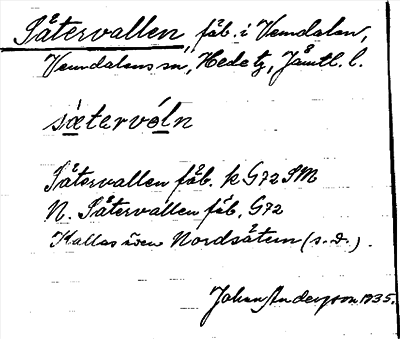 Såtervallen, fäb. i Vemdalen,
Vemdalens sn, Hede tg, Jämtl. l.
sà̱tervó̱ln
Såtervallen fäb. k G72 SM
N. Såtervallen fäb. G72
Kallas även Nordsåtern (s. d.).
Johan Anderson 1935.